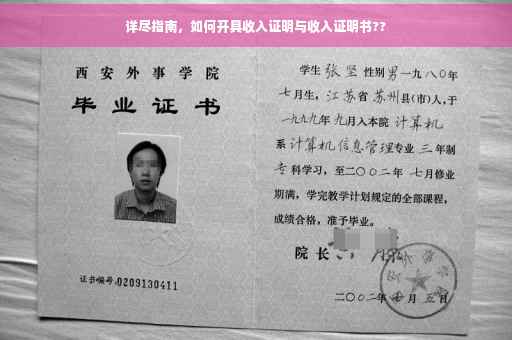 详尽指南，如何开具收入证明与收入证明书??
西安外事学院
毕业证书
证书编号:0209130411
学生张坚性别男一九八〇年
七月生，江苏省苏州县(市)人,于
一九九九年九月入本院计算机
系计算机信息管理专业三年制
专科学习，至二〇〇二年七月修业
期满，学完教学计划规定的全部课程，
成绩合格，准予毕业。
院长
二〇〇二年七月五日